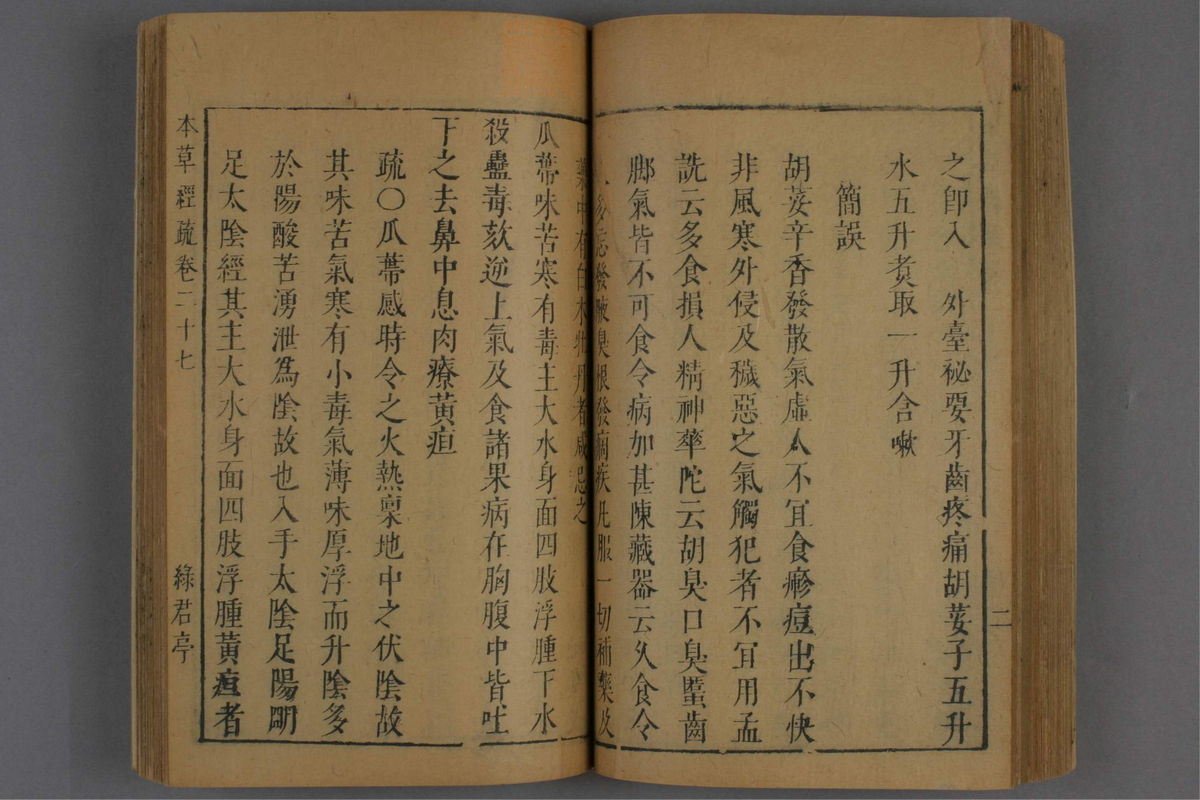 之卽入　外臺祕要牙齒疼痛胡荽子五升
水五升煮取一升含嗽
簡誤
胡荽辛香發散氣虛人不宜食瘮痘出不快
非風寒外侵及穢惡之氣觸犯者不宜用孟
詵云多食損人精神華陀云胡臭口臭䘌齒
脚氣皆不可食令病加甚陳藏器云久食令
人多忘發腋臭根發痼疾凢服一切補藥及
藥中有白术牡丹者咸忌之
瓜蔕味苦寒有毒主大水身面四肢浮腫下水
殺蠱毒欬逆上氣及食諸果病在胸腹中皆吐
下之去鼻中息肉療黃疸
疏〇瓜蔕感時令之火熱稟地中之伏陰故
其味苦氣寒有小毒氣薄味厚浮而升陰多
於陽酸苦湧泄爲陰故也入手太陰足陽明
足太陰經其主大水身面四肢浮腫黃疸者
本草經疏卷二十七
綠君亭
二